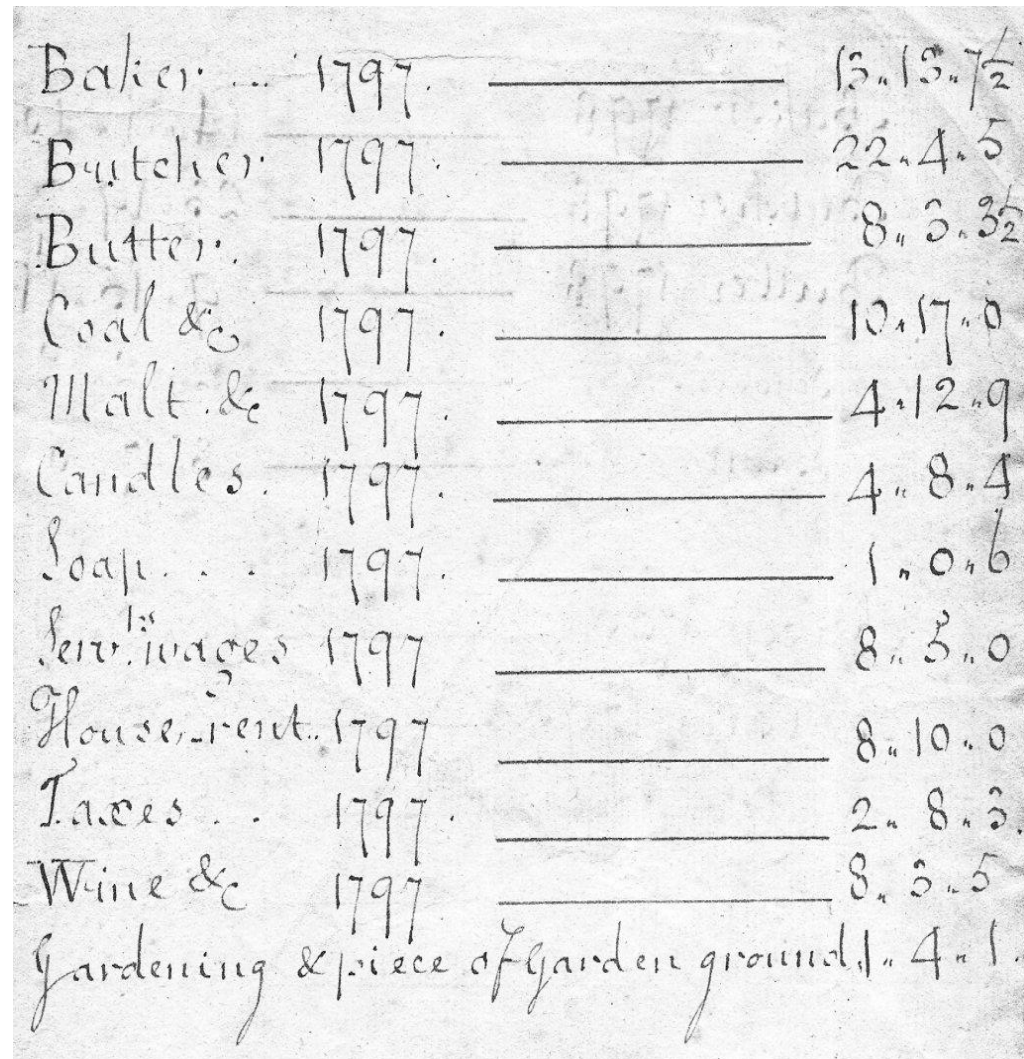 Baker ... 1797. 13.. 13.. 7½
Butcher 1797. 22.. 4.. 5
Butter. 1797. 8.. 3.. 3½
Coal &c 1797. 10.. 17.. 0
Malt. &c 1797. 4.. 12.. 9
Candles. 1797. 4.. 8.. 4
Soap. . . 1797. 1.. 0.. 6
Servts. wages 1797 8.. 5.. 0
House-rent.. 1797 8.. 10.. 0
Taxes . . 1797. 2.. 8.. 3.
Wine &c 1797 8.. 3.. 5
Gardening & piece of Garden ground. 1.. 4.. 1.